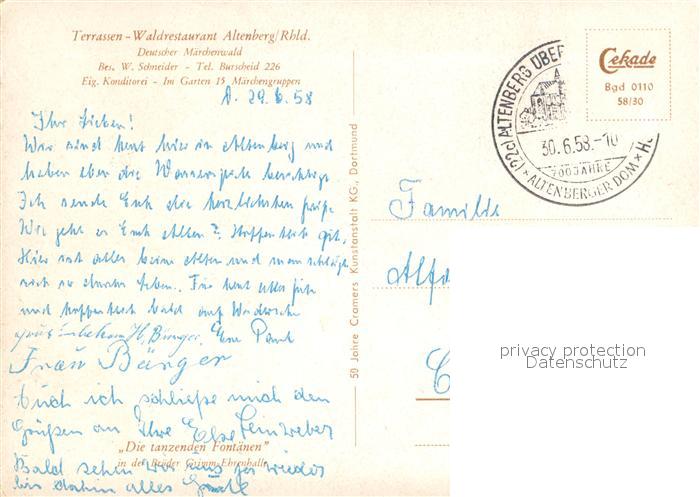 Terrassen-Waldrestaurant Altenberg/Rhld.
Deutscher Märchenwald
Bes. W. Schneider - Tel. Burscheid 226
Eig. Konditorei - Im Garten 15 Märchengruppen
A. 29.6.58
Ihr Lieben!
Wir sind heut hier in Altenberg und
haben eben die Wasserspiele besichtigt.
Ich sende Euch die herzlichsten Grüße.
Wie geht es Euch allen? Hoffentlich gut.
Hier ist alles beim alten und man schlägt
sich so durchs Leben. Für heut alles gute
und hoffentlich bald auf Wiedersehn
Eure
Frau Bürger
Auch ich schließe mich den
Grüßen an Ihre Else
Bald sehen wir uns ja wieder
bis dahin alles Gute
„Die tanzenden Fontänen"
in der Brüder Grimm-Ehrenhalle
50 Jahre Cramers Kunstanstalt KG., Dortmund
(22c) ALTENBERG ÜBER
30.6.58.-10
700 JAHRE
ALTENBERGER DOM
Cekade
Bgd 0110
58/30
Familie
Alfo
privacy protection
Datenschutz